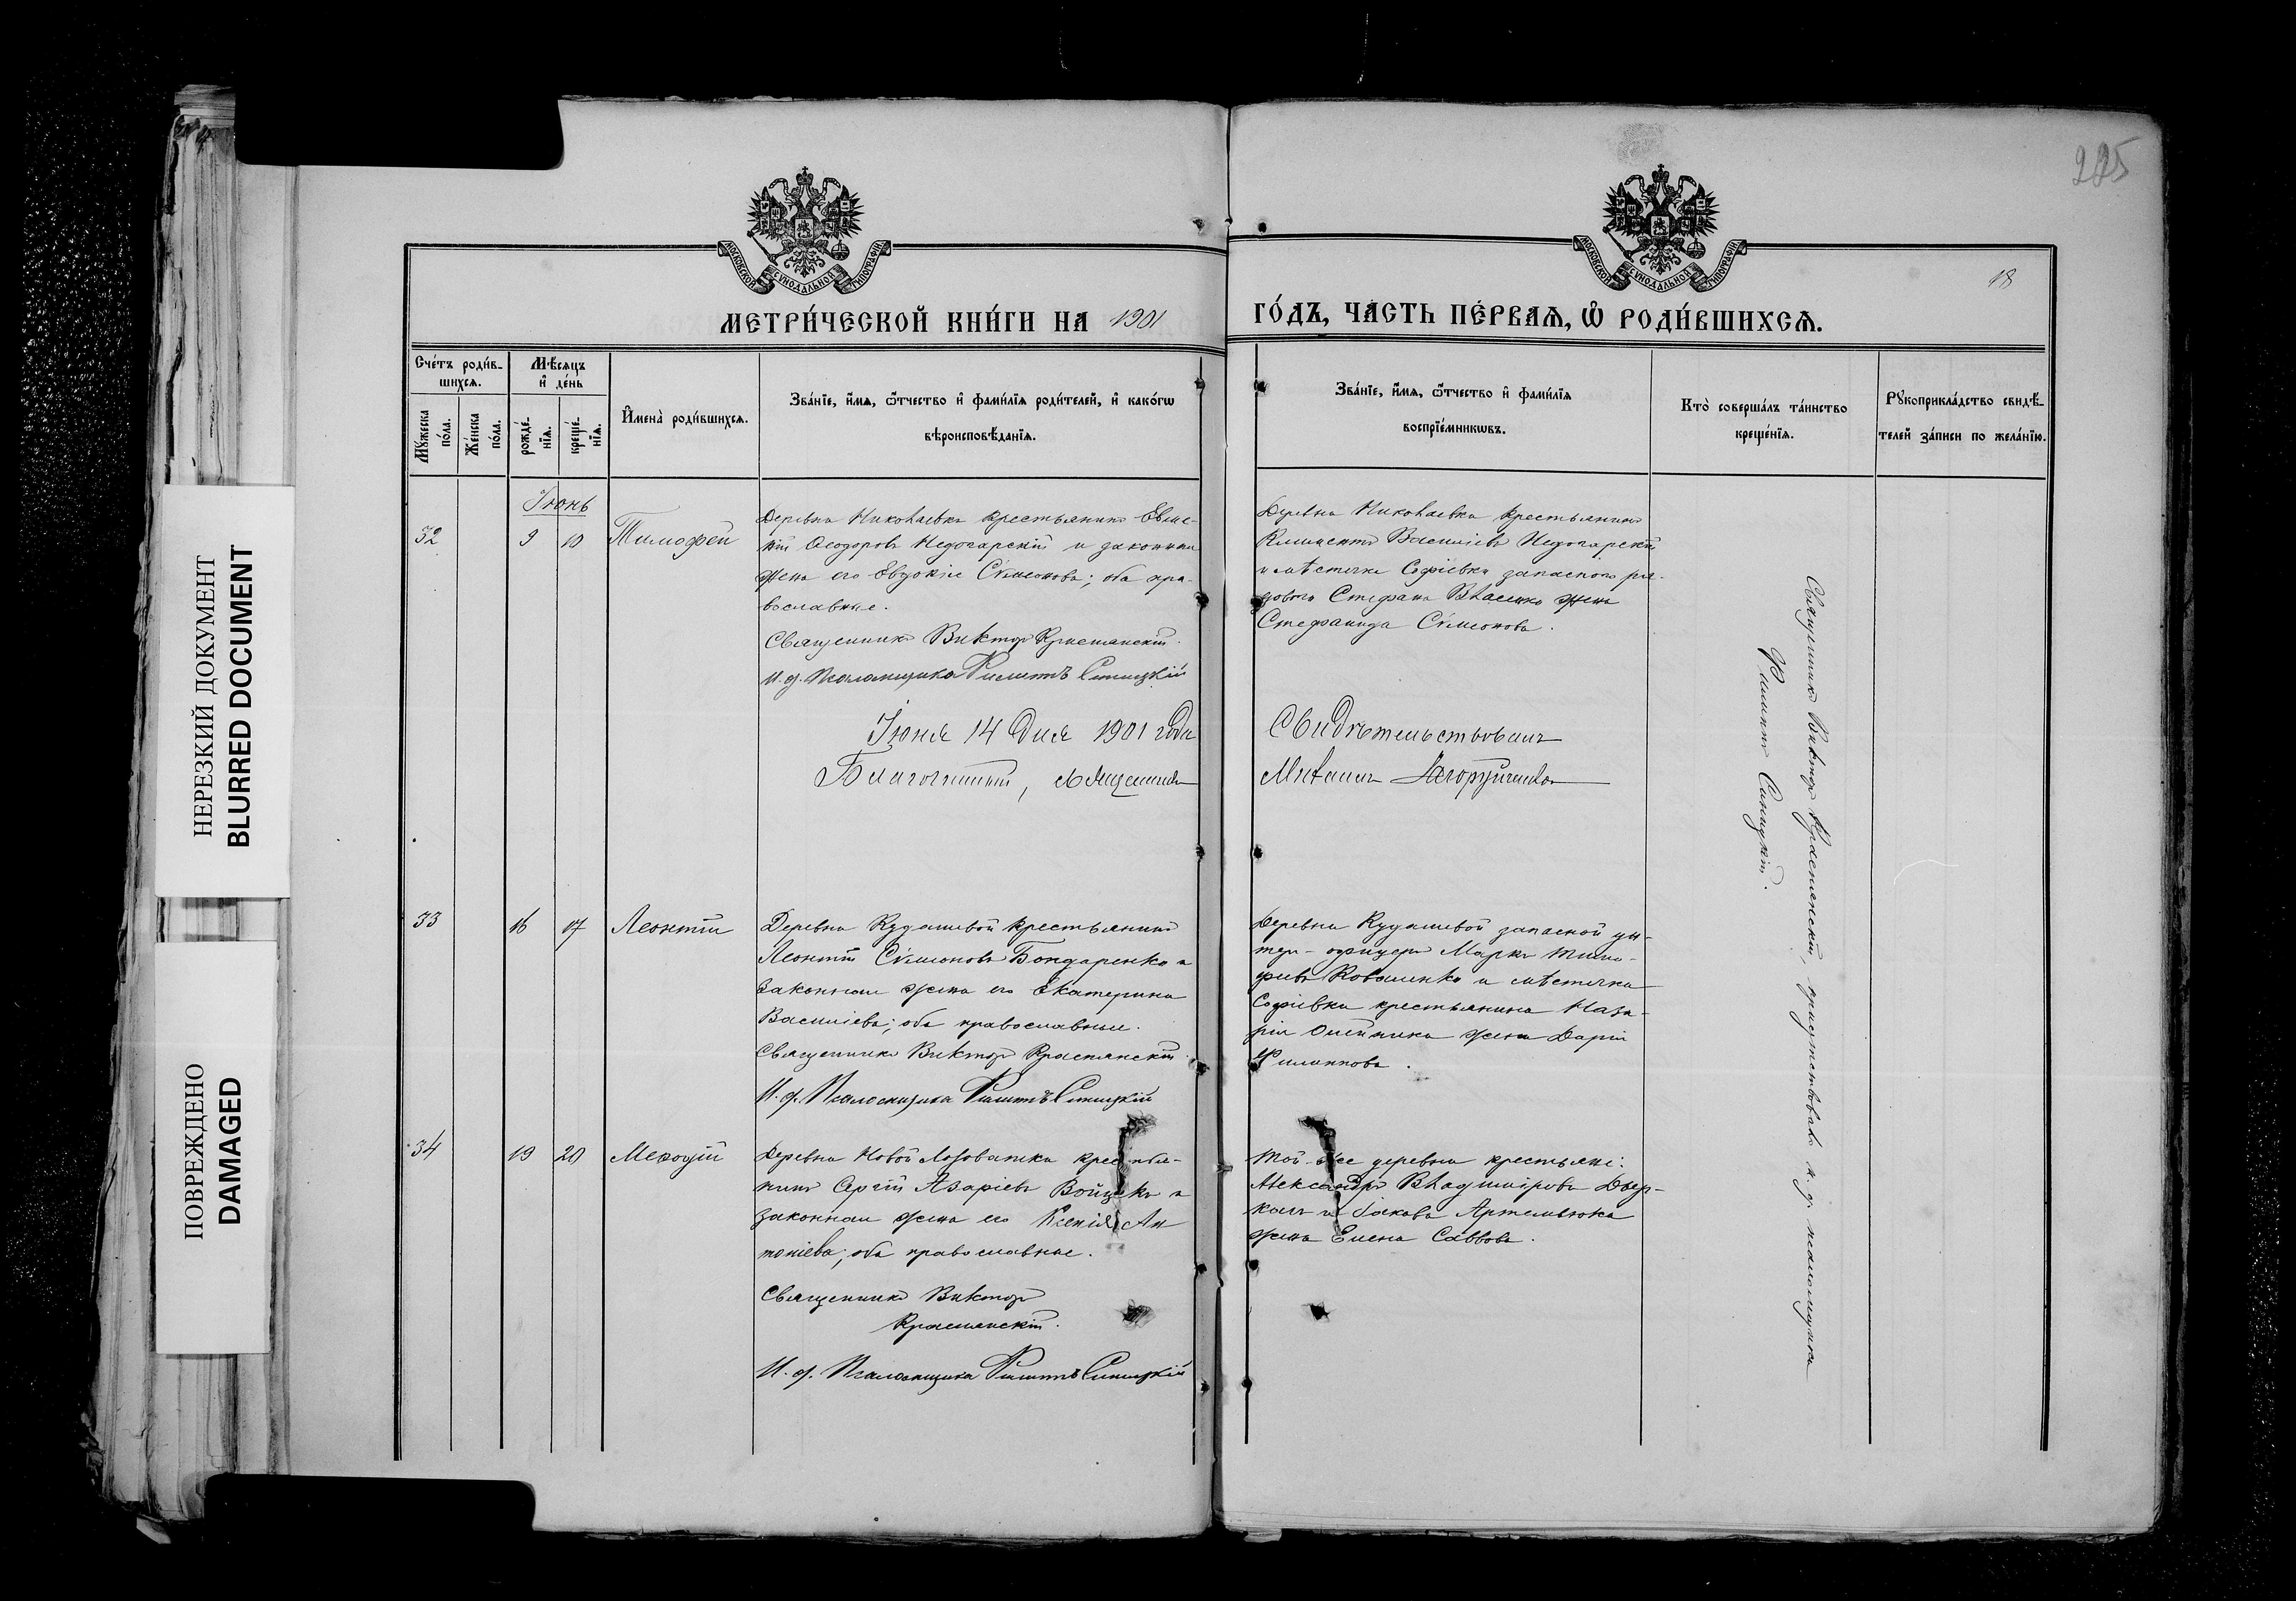 НЕРЕЗКИЙ ДОКУМЕНТ
BLURRED DOCUMENT
ПОВРЕЖДЕНО
DAMAGED
225
18
МОСКОВСКОЙ СѴНОДАЛЬНОЙ ТИПОГРАФІИ
МОСКОВСКОЙ СѴНОДАЛЬНОЙ ТИПОГРАФІИ
МЕТРИ́ЧЕСКОЙ КНИ́ГИ НА 1901 ГО́ДЪ, ЧА́СТЬ ПЕ́РВАѦ, Ѡ҆ РОДИ́ВШИХСѦ.
Сче́тъ роди́в-
шихсѧ.
Мꙋ́жеска по́ла.
Же́нска по́ла.
Мѣ́сѧцъ
и҆ де́нь
рожде́-
нїѧ.
креще́-
нїѧ.
И҆мена̀ роди́вшихсѧ.
Зва́нїе, и҆́мѧ, ѻ҆́тчество и҆ фами́лїѧ роди́телей, и҆ како́гѡ
вѣроисповѣ́данїѧ.
Зва́нїе, и҆́мѧ, ѻ҆́тчество и҆ фами́лїѧ
воспрїе́мникѡвъ.
Кто̀ соверша́лъ та́инство
креще́нїѧ.
Рꙋкоприкла́дство свидѣ́-
телей за́писи по жела́нїю.
Іюнь
32
9
10
Тимофей
Деревни Николаевки крестьянинъ Евме-
ній Ѳеодоровъ Недогарскій и законная
жена его Евдокія Сѵмеонова; оба пра-
вославные.
Священникъ Викторъ Краснянскій.
И. д. Псаломщика Филиппъ Синицкій
Іюня 14 дня 1901 года
Благочинный,
Деревни Николаевки крестьянинъ
Климентъ Василіевъ Недогарскій
и мѣстечка Софіевки запаснаго ря-
дового Стефана Власенко жена
Стефанида Сѵмеонова.
Свидѣтельствовалъ
Михаилъ
Священникъ Викторъ Краснянскій, присутствовалъ и. д. псаломщика
Филиппъ Синицкій.
33
16
17
Леонтій
Деревни Кудашевой крестьянинъ
Леонтій Сѵмеоновъ Бондаренко и
законная жена его Екатерина
Василіева; оба православные.
Священникъ Викторъ Краснянскій
И. д. Псаломщика Филиппъ Синицкій
Деревни Кудашевой запасной ун-
теръ-офицеръ Маркъ Тимо-
феевъ Коваленко и мѣстечка
Софіевки крестьянина Наза-
рія Олейника жена Дарія
Филиппова.
34
19
20
Меѳодій
Деревни Новой Лозоватки крестья-
нинъ Сергій Азаріевъ и
законная жена его Ксенія Ан
тоніева; оба православные.
Священникъ Викторъ
Краснянскій.
И. д. Псаломщика Филиппъ Синицкій
Той-же деревни крестьяне:
Александръ Владиміровъ Двер-
качъ и Іакова Артемьюка
жена Елена Саввова.